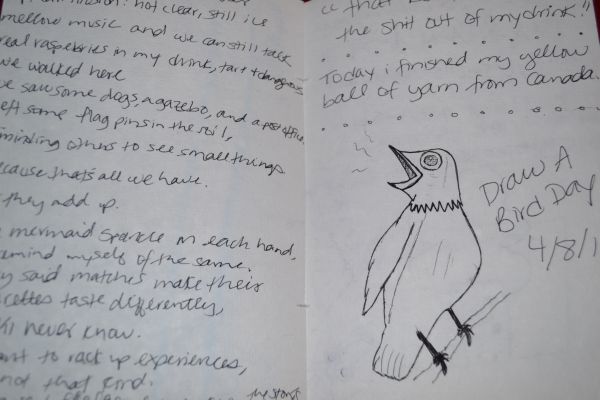 not clear, still ice
mellow music and we can still talk
real raspberries in my drink, tart + dangerous
we walked here
saw some dogs, a gazebo, and a post office.
left some flag pins in the soil,
reminding others to see small things
because that's all we have.
they add up.
mermaid sparkle on each hand,
remind myself of the same.
said matches make their
cigarettes taste differently,
I never know.
want to rack up experiences,
not that kind.
the story
"that
the shit out of my drink!!
Today i finished my yellow
ball of yarn from Canada.
Draw A
Bird Day
4/8/1